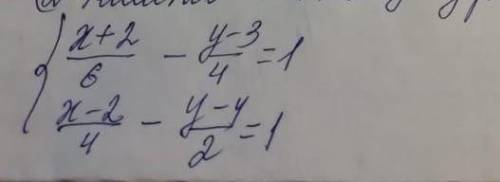 x+2/6 - y-3/4 = 1
x-2/4 - y-y/2 = 1